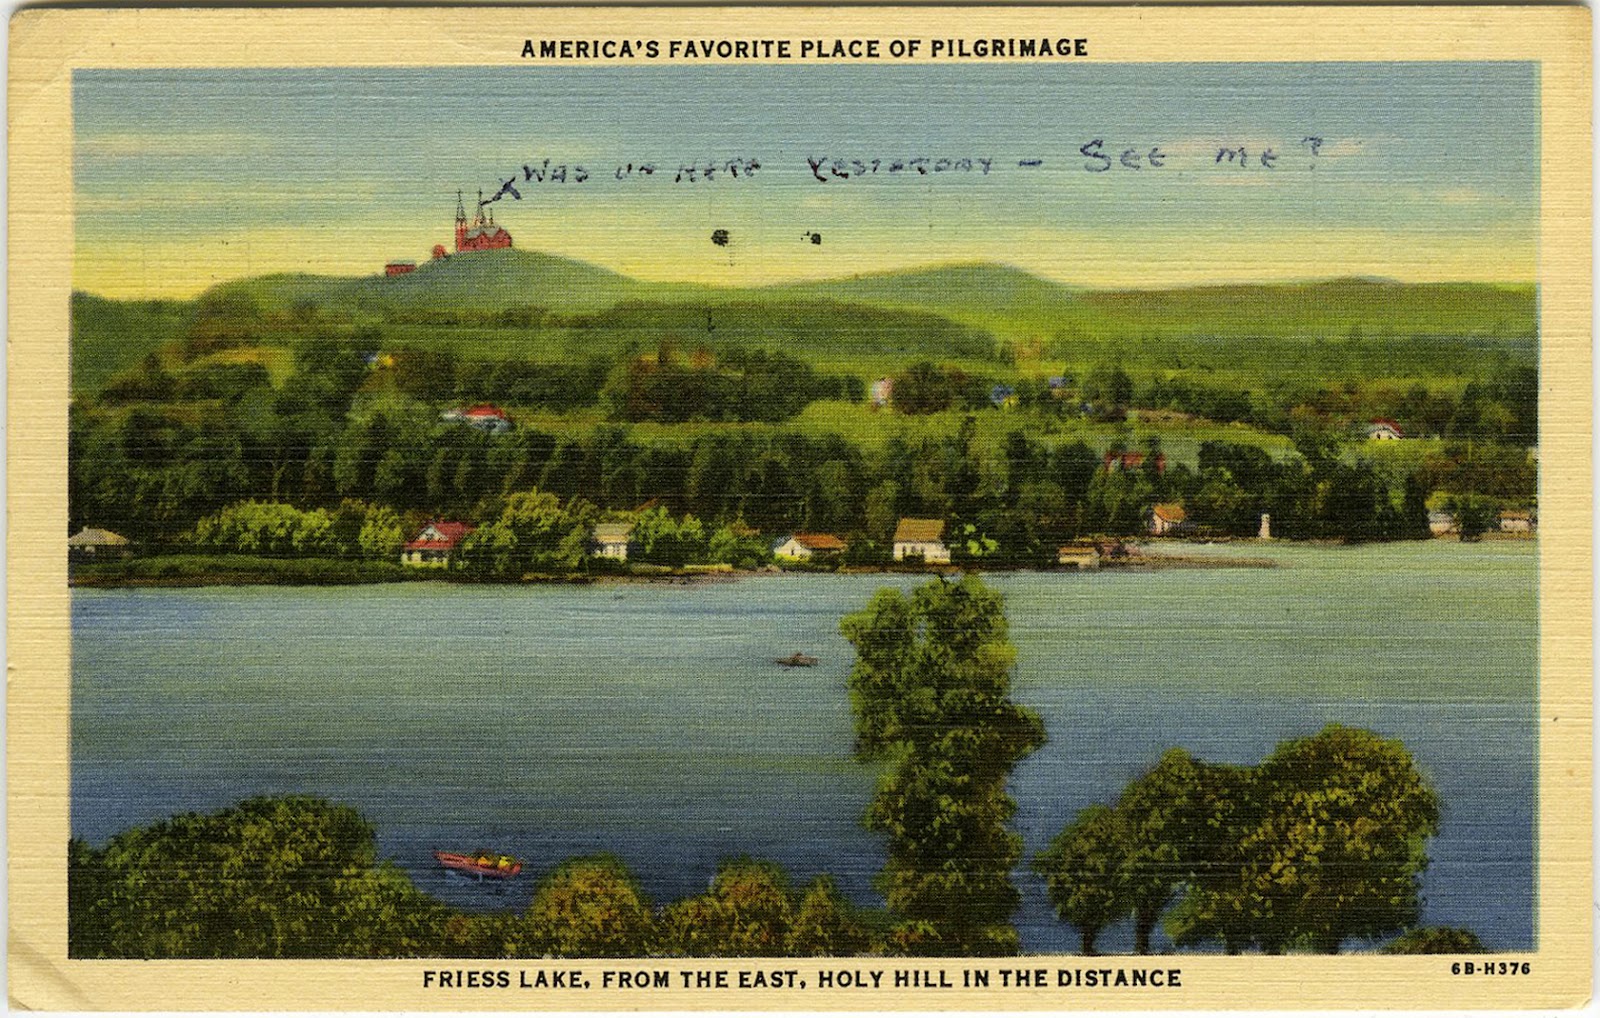 AMERICA'S FAVORITE PLACE OF PILGRIMAGE
WAS UP HERE YESTERDAY - SEE ME?
FRIESS LAKE, FROM THE EAST, HOLY HILL IN THE DISTANCE
6B-H376